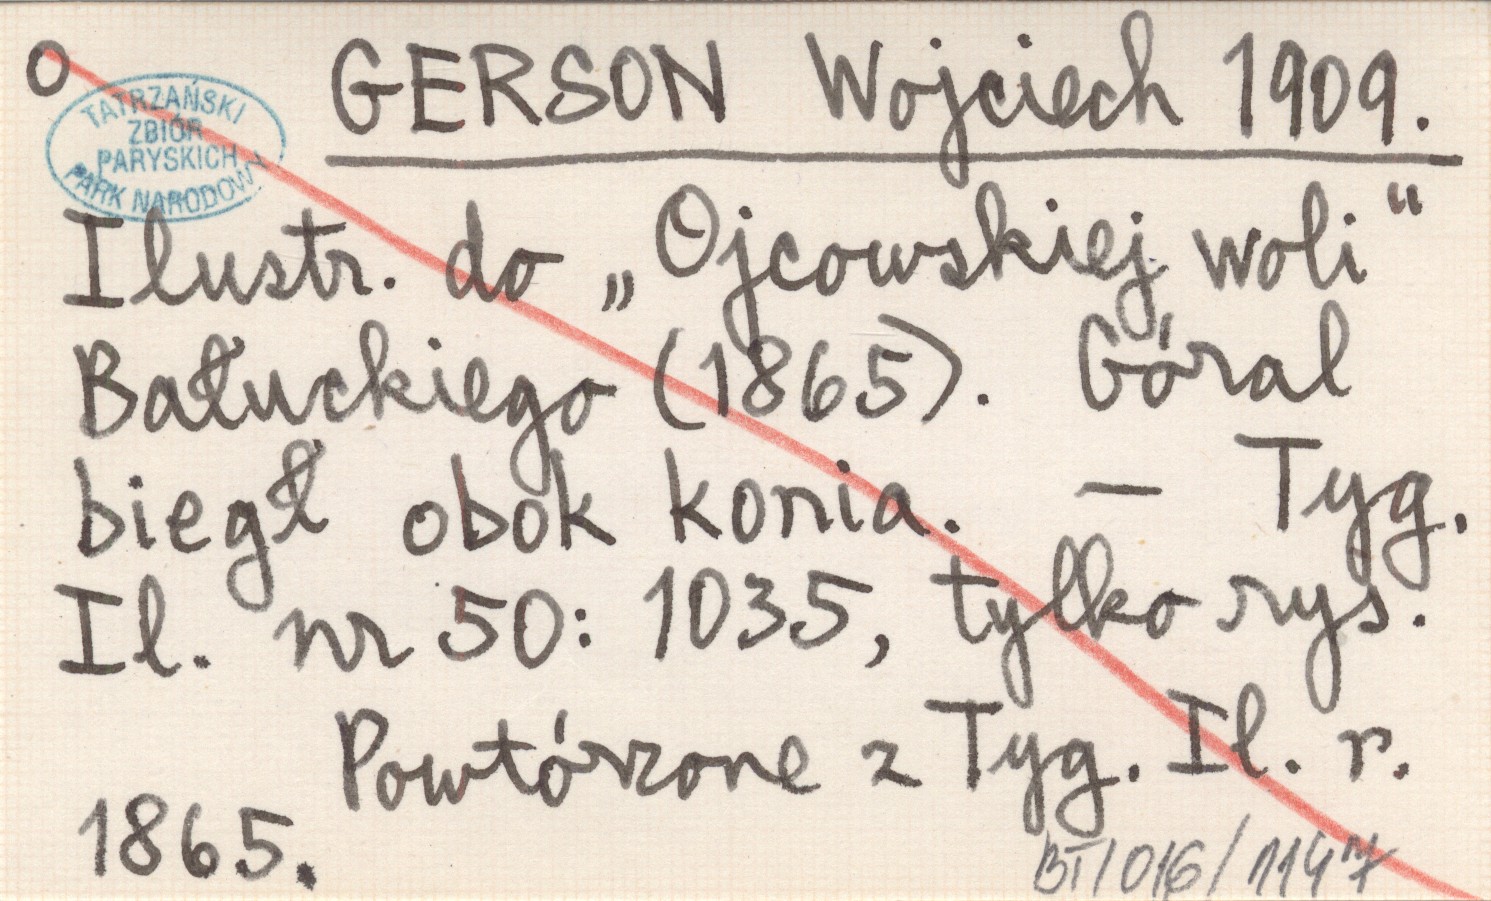 O
GERSON Wojciech 1909.
TATRZAŃSKI
ZBIÓR
PARYSKICH
PARK NARODOWY
Ilustr. do „Ojcowskiej woli“
Bałuckiego (1865). Góral
biegł obok konia. — Tyg.
Il. nr 50: 1035, tylko rys.
Powtórzone z Tyg. Il. r.
1865.
BT/016/1147